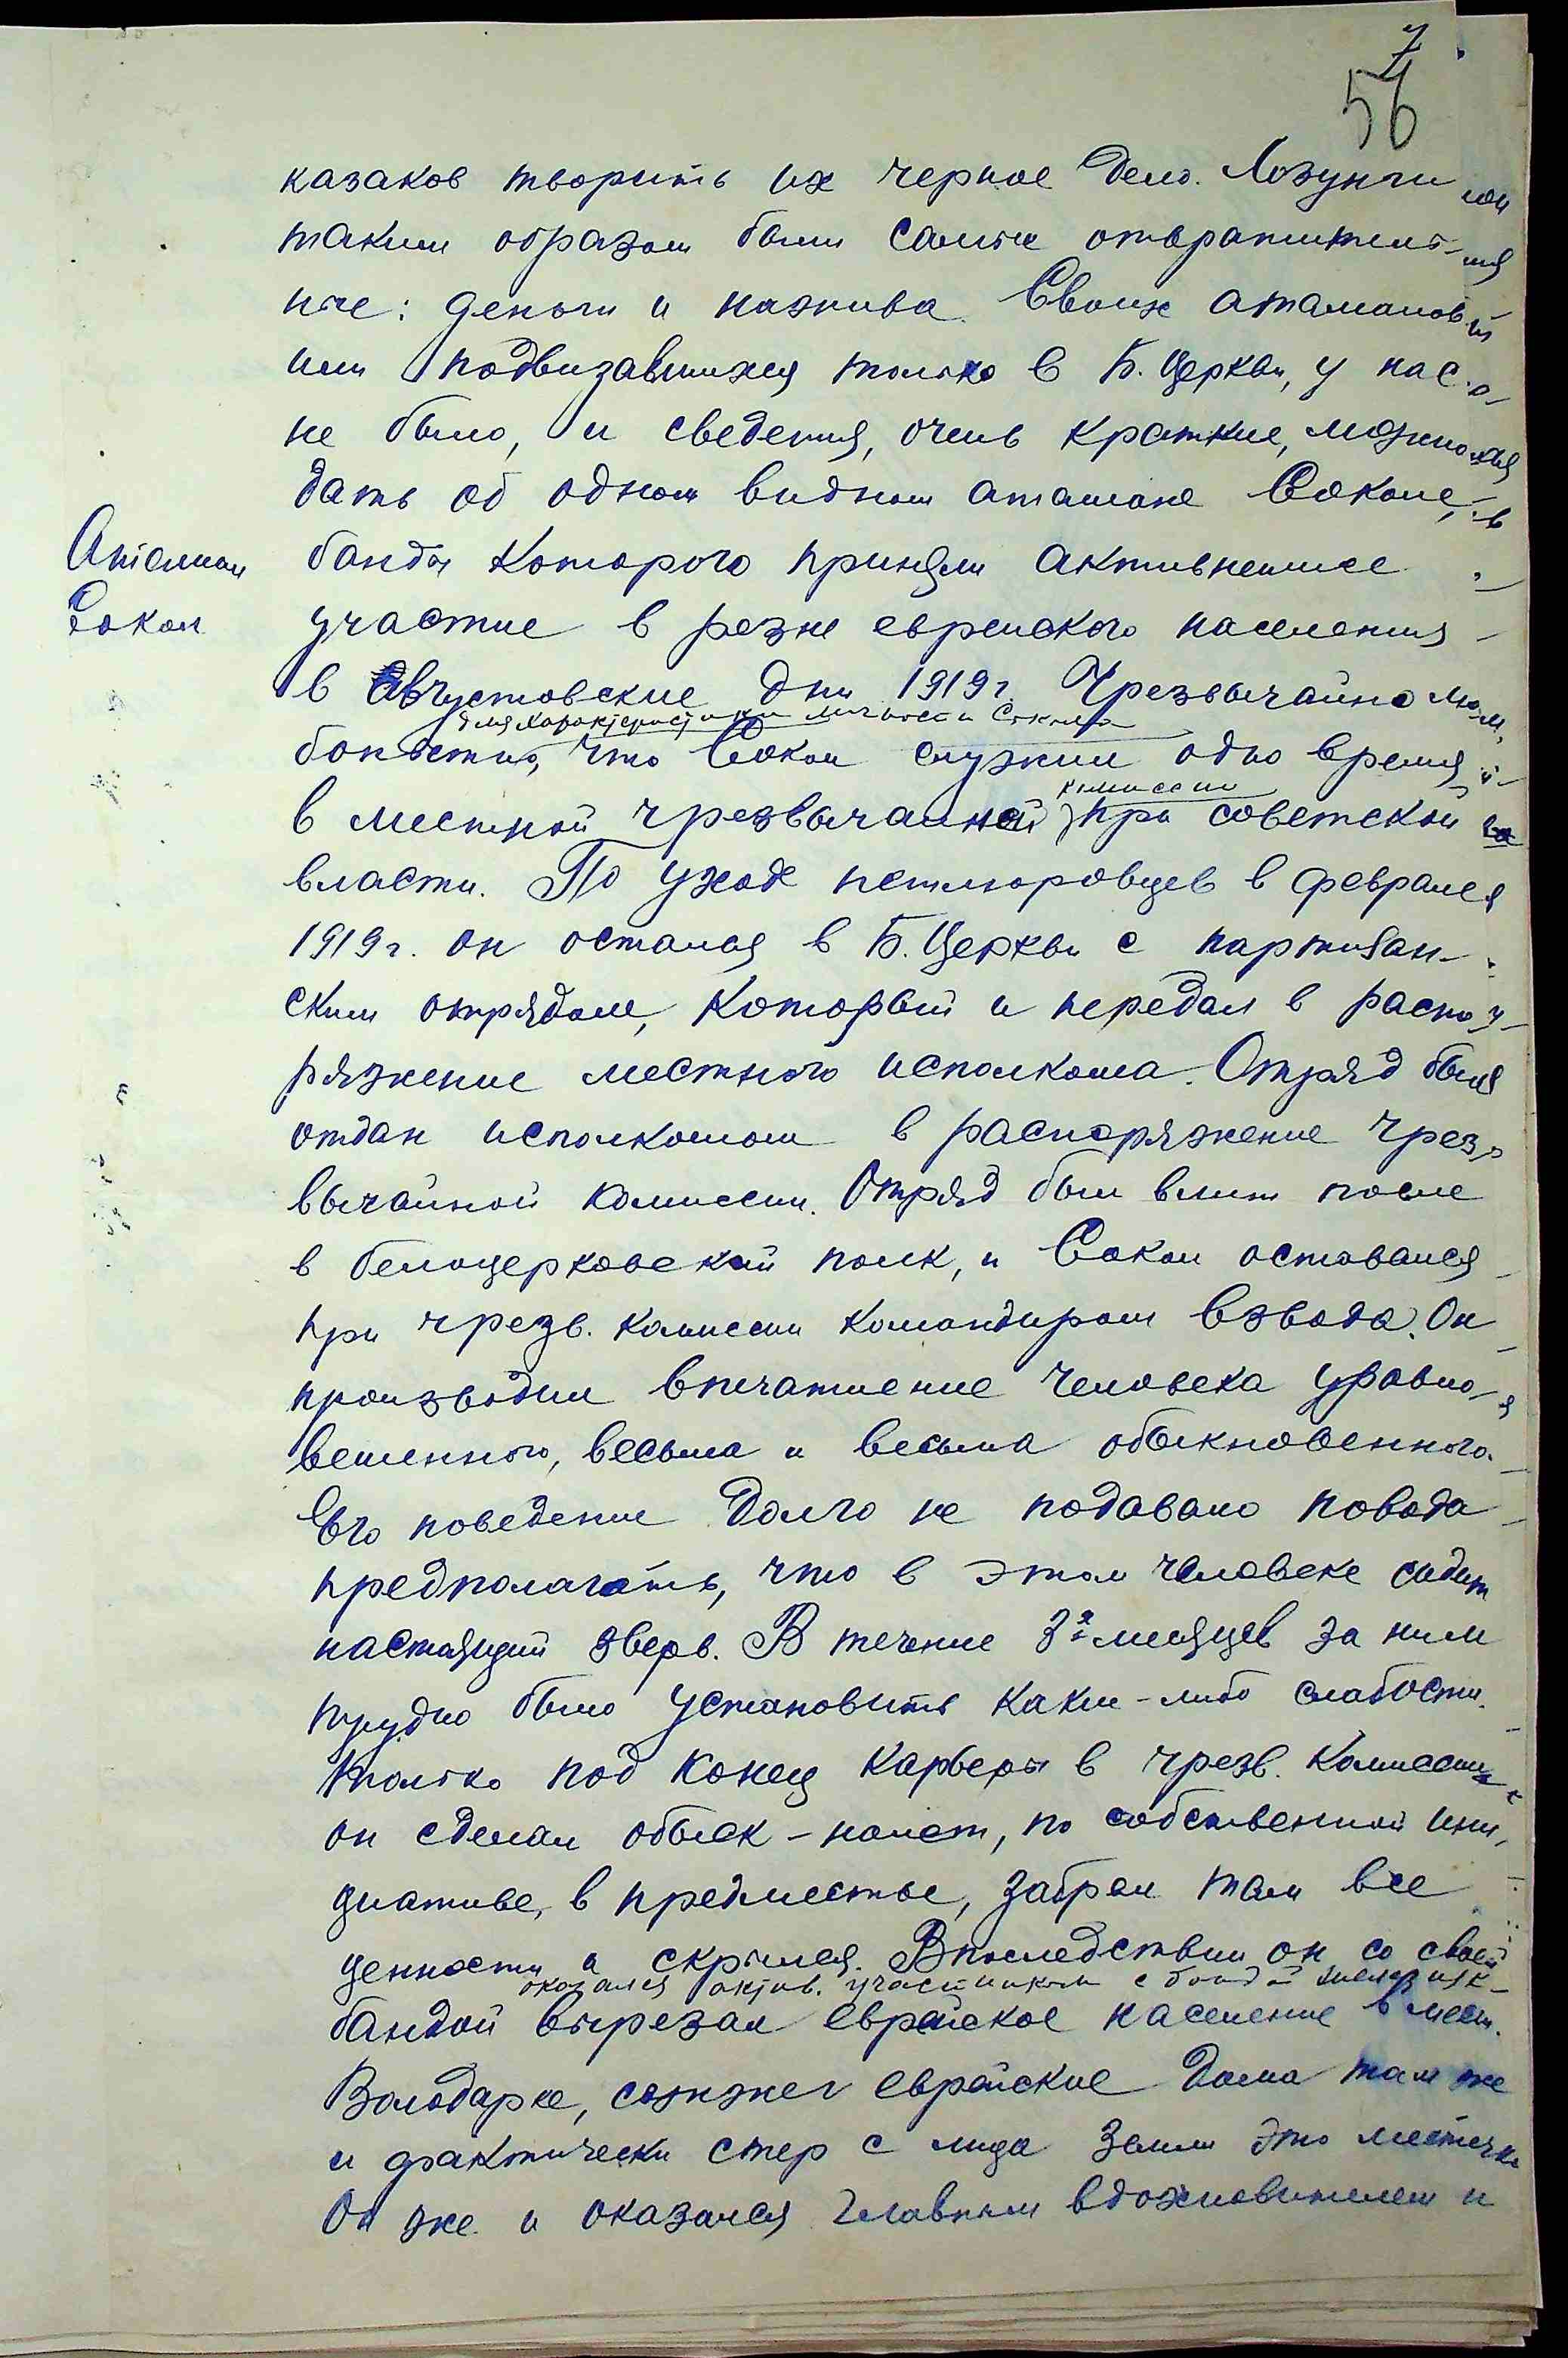 7.
56
казаков творить их черное дело. Лозунги
таким образом были самые отвратитель-
ные: деньги и нажива. Своих атаманов
или подвизавшихся только в Б. Церкви, у нас
не было, и сведения, очень краткие, можно
дать об одном видном атамане Соколе,
Атаман
Сокол
банда которого приняли активнейшее
участие в резне еврейского населения
в августовские дни 1919 г. Чрезвычайно лю-
для характеристики личности Сокола
бопытно, что Сокол служил одно время
комиссии
в местной чрезвычайной при советской
власти. По уходе петлюровцев в феврале
1919 г. он остался в Б. Церкви с партизан-
ским отрядом, который и передал в распо-
ряжение местного исполкома. Отряд был
отдан исполкомом в распоряжение чрез-
вычайной комиссии. Отряд был влит после
в белоцерковский полк, и Сокол оставался
при чрезв. комиссии командиром взвода. Он
производил впечатление человека уравно-
вешенного, весьма и весьма обыкновенного.
Его поведение долго не подавало повода
предполагать, что в этом человеке сидит
настоящий зверь. В течение 3х месяцев за ним
трудно было установить какие-либо слабости.
Только под конец карьеры в чрезв. комиссии
он сделал обыск-налет, по собственной ини-
циативе, в предместье, забрал там все
ценности и скрылся. Впоследствии он со своей
оказался актив. участником с бандой
бандой вырезал еврейское население в мест.
Володарке, сжег еврейские дома там же
и фактически стер с лица земли это местечко
Он же и оказался главным вдохновителем и